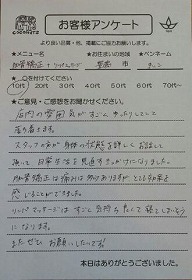 お客様アンケート
より良い品質・他、掲載にご協力お願いします。
★メニュー名 ★お住まいの地域 ★ペンネーム
★○を付けてください
10代 20代 30代 40代 50代 60代 70代～
★ご意見・ご感想をお聞かせください。
店内の雰囲気がすごくゆったりしてて
落ち着きます。
スタッフの方が身体の状態を詳しくお話して
頂いて日常生活を見直すきっかけになりました。
骨盤矯正は痛みは少しありますがとても効果を
感じることができました。
リンパマッサージはすごく気持ち良くて寝てしまいそう
になります。
またぜひお願いしたいです！
本日はありがとうございました。